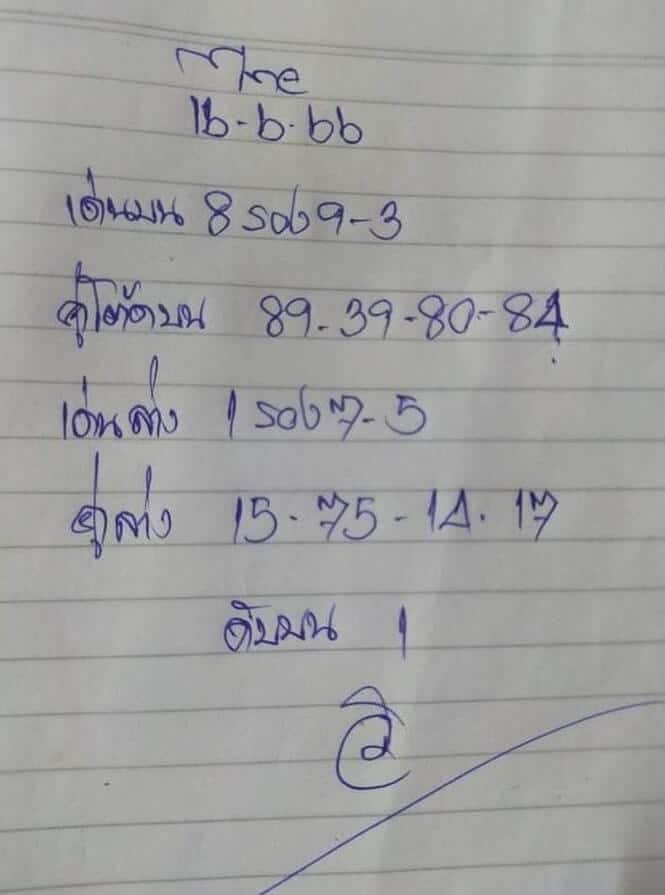 16-6-66
เด่นบน 8 รอง 9-3
คู่โต๊ดบน 89-39-80-84
เด่นล่าง 1 รอง 7-5
คู่ล่าง 15-75-14-17
ดับบน 1